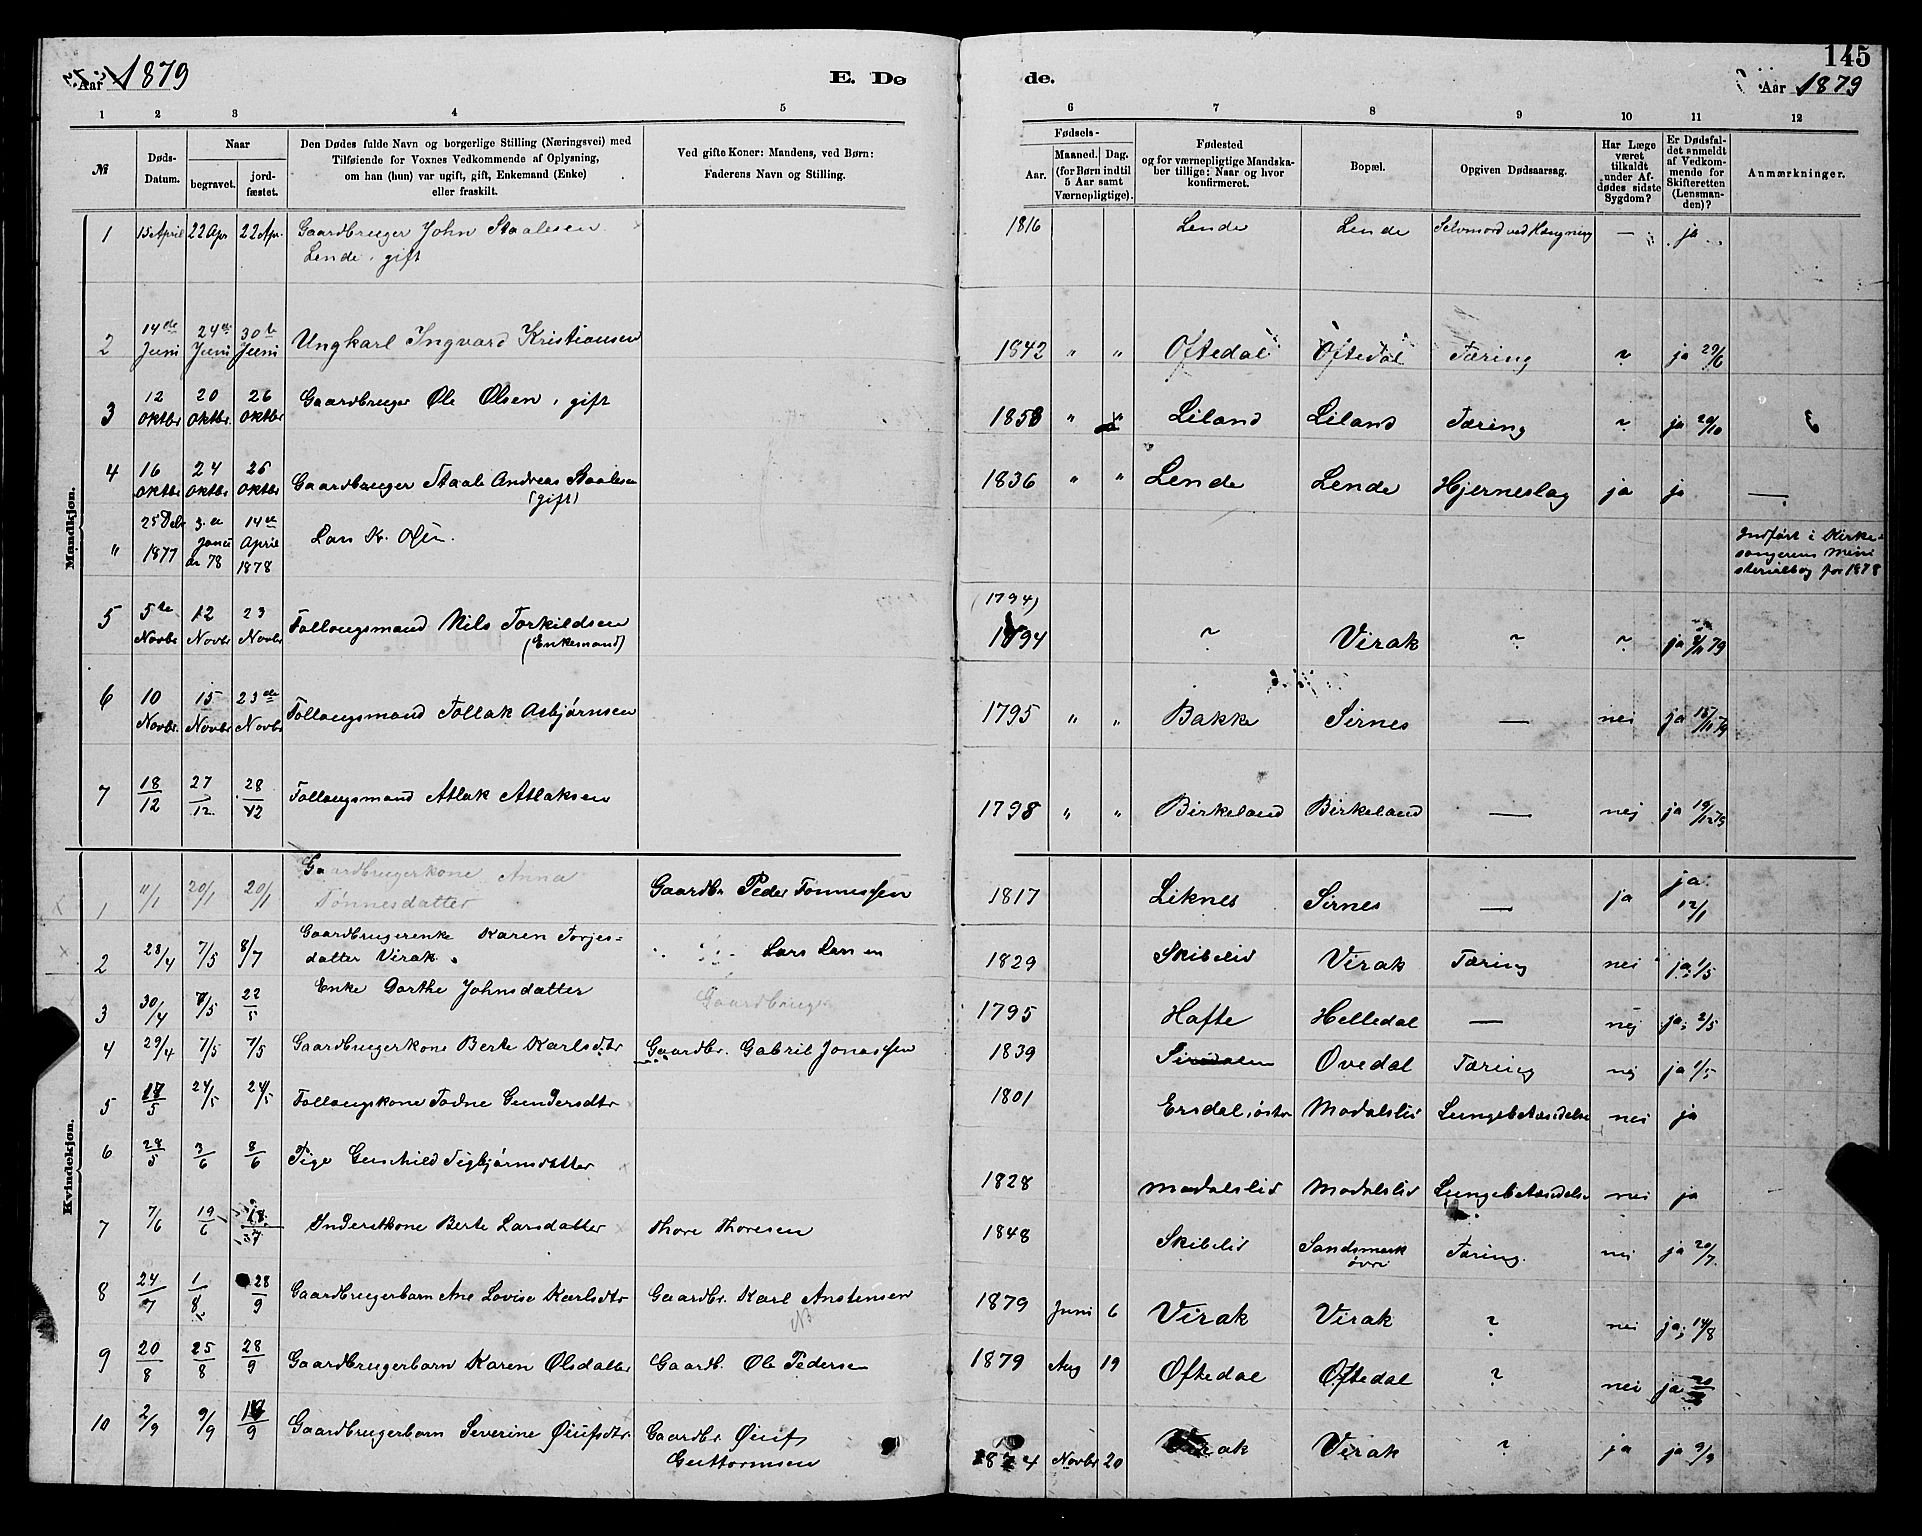 145
Aar 1879
E. Dø
de.
Aar 1879
1 2 3 4 5 6 7 8 9 10 11 12
№
Døds-
Datum.
Naar
begravet.
jord-
fæstet.
Den Dødes fulde Navn og borgerlige Stilling (Næringsvei) med
Tilføiende for Voxnes Vedkommende af Oplysning,
om han (hun) var ugift, gift, Enkemand (Enke)
eller fraskilt.
Ved gifte Koner: Mandens, ved Børn:
Faderens Navn og Stilling.
Fødsels-
Aar.
Maaned. Dag.
(for Børn indtil
5 Aar samt
Værnepligtige).
Fødested
og for værnepligtige Mandska-
ber tillige: Naar og hvor
konfirmeret.
Bopæl.
Opgiven Dødsaarsag.
Har Læge
været
tilkaldt
under Af-
dødes sidste
Sygdom?
Er Dødsfal-
det anmeldt
af Vedkom-
mende for
Skifteretten
(Lensman-
den)?
Anmærkninger.
Mandkjøn.
1 15 April 22 Apr 22 Apr. Gaardbruger John Staalesen 1816 Lende Lende Selvmord ved Hængning — ja
Lende, gift
2 14de Juni 24de Juni 30te Juni Ungkarl Ingvard Kristiansen 1842 " " Oftedal Oftedal Tæring ? ja 29/6
3 12 Oktbr 20 Oktbr. 26 Oktbr Gaardbruger Ole Olsen, gift 1858 " " Liland Liland Tæring ? ja 20/10
4 16 Oktbr 24 Oktbr 26 Oktbr Gaardbruger Staale Andreas Staalesen 1836 " " Lende Lende Hjerneslag ja ja —
(gift)
" 25 Debr 1877 3.de Janu ar 78 14de April 1878 Lars K. Olsen. Indført i Kirke-
sangerens Mini
sterialbog for 1878
5 5te Novbr 12 Novbr 23 Novbr Follaugsmand Nils Torkildsen (1794) 1794 ? Virak ? ? ja 8/11 79
(Enkemand)
6 10 Novbr. 15 Novbr 23de Novbr Follaugsmand Tollak Asbjørnsen 1795 " " Bakke Sirnes — nei ja 15/11 79
7 18/12 27/12 28/12 Follaugsmand Atlak Atlaksen 1798 " " Birkeland Birkeland — nej ja 19/12 79
Kvindekjøn.
1 11/1 20/1 20/1 Gaardbrugerkone Anna Gaardbr. Peder Tønnessen 1817 Liknes Sirnes — ja ja 12/1
Tønnesdatter
2 28/4 7/5 8/7 Gaardbrugerenke Karen Torjes- Lars Larsen 1829 Skibelid Virak Tæring nei ja 1/5
datter Virak.
3 30/4 7/5 22/5 Enke Dorthe Johnsdatter Gaardbruger 1795 Hafte Helledal — nej ja; 2/5
4 29/4 7/5 7/5 Gaardbrugerkone Berte Karlsdtr Gaardbr. Gabriel Jonassen 1839 Sirdalen Ovedal Tæring nej ja 1/5
5 17/5 24/5 24/5 Follaugskone Todne Gundersdtr 1801 Ersdal østr Modalslid Lungebetændelse nei ja
6 28/5 3/6 8/6 Pige Gunhild Sigbjørnsdatter 1828 Modalslid Modalslid Lungebetændelse nei ja
7 7/6 19/6 Inderstkone Berte Larsdatter Thore Thoresen 1848 Skibelid Sandsmark Tæring. nei ja 20/7.
øvre
8 24/7 1/8 28/9 Gaardbrugerbarn Ane Lovise Karlsdtr Gaardbr. Karl Anstensen 1879 Juni 6 Virak Virak ? nei ja; 14/8
NB
9 20/8 25/8 28/9 Gaardbrugerbarn Karen Olsdatter Gaardb. Ole Pedersen 1879 Aug 19 Oftedal Oftedal ? nei ja
10 2/9 9/9 Gaardbrugerbarn Severine Øiufsdtr. Gaardbr. Øiuf 1874 Novbr 20 Virak Virak ? ja ja 9/9
Guttormsen